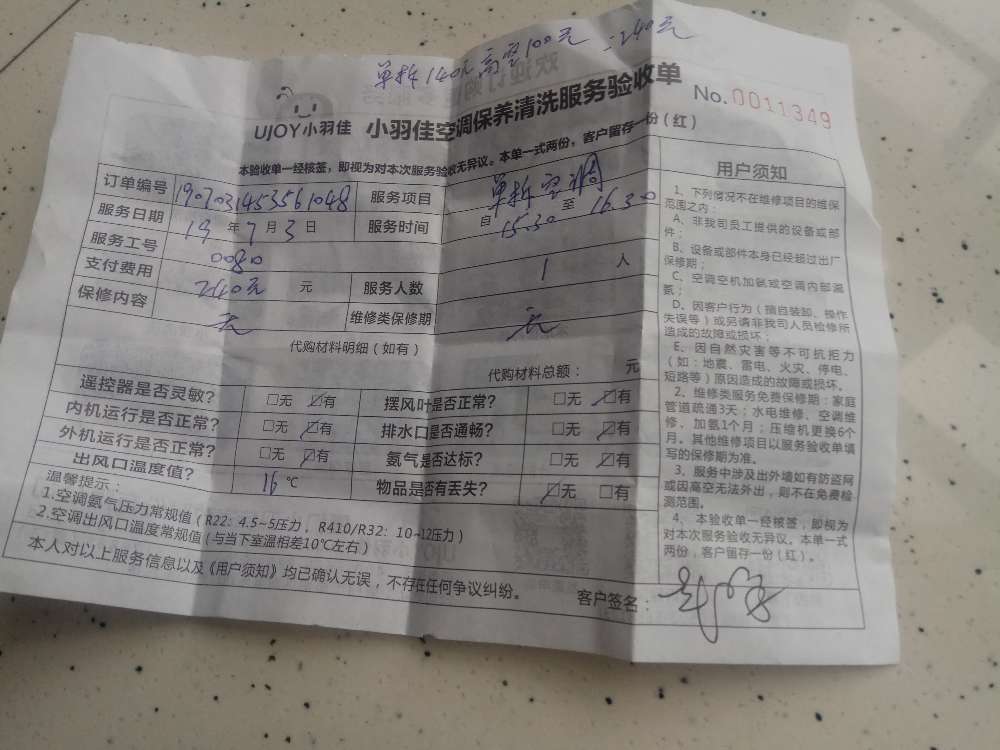 单拆140元 高空100元 =240元
UJOY小羽佳 小羽佳空调保养清洗服务验收单
No.0011349
本验收单一经核签，即视为对本次服务验收无异议。本单一式两份，客户留存一份（红）
订单编号 1907031453561048 服务项目 单拆空调
服务日期 19 年 7 月 3 日 服务时间 自 15.30 至 16.30
服务工号 0080
支付费用 240元 元 服务人数 1 人
保修内容 无 维修类保修期 无
代购材料明细（如有）
代购材料总额： 元
遥控器是否灵敏？ □无 ☑有 摆风叶是否正常？ □无 ☑有
内机运行是否正常？ □无 ☑有 排水口是否通畅？ □无 ☑有
外机运行是否正常？ □无 ☑有 氨气是否达标？ □无 ☑有
出风口温度值？ 16 ℃ 物品是否有丢失？ ☑无 □有
温馨提示：
1.空调氨气压力常规值（R22：4.5~5压力，R410/R32：10~12压力）
2.空调出风口温度常规值（与当下室温相差10℃左右）
本人对以上服务信息以及《用户须知》均已确认无误，不存在任何争议纠纷。
客户签名：
用户须知
1、下列情况不在维修项目的维保
范围之内：
A、非我司员工提供的设备或部
件；
B、设备或部件本身已经超过出厂
保修期；
C、空调空机加氨或空调内部漏
氨；
D、因客户行为（擅自装卸、操作
失误等）或另请非我司人员检修所
造成的故障或损坏；
E、因自然灾害等不可抗拒力
（如：地震、雷电、火灾、停电、
短路等）原因造成的故障或损坏。
2、维修类服务免费保修期：家庭
管道疏通3天；水电维修、空调维
修、加氨1个月；压缩机更换6个
月。其他维修项目以服务验收单填
写的保修期为准。
3、服务中涉及出外墙如有防盗网
或因高空无法外出，则不在免费检
测范围。
4、本验收单一经核签，即视为
对本次服务验收无异议。本单一式
两份，客户留存一份（红）。